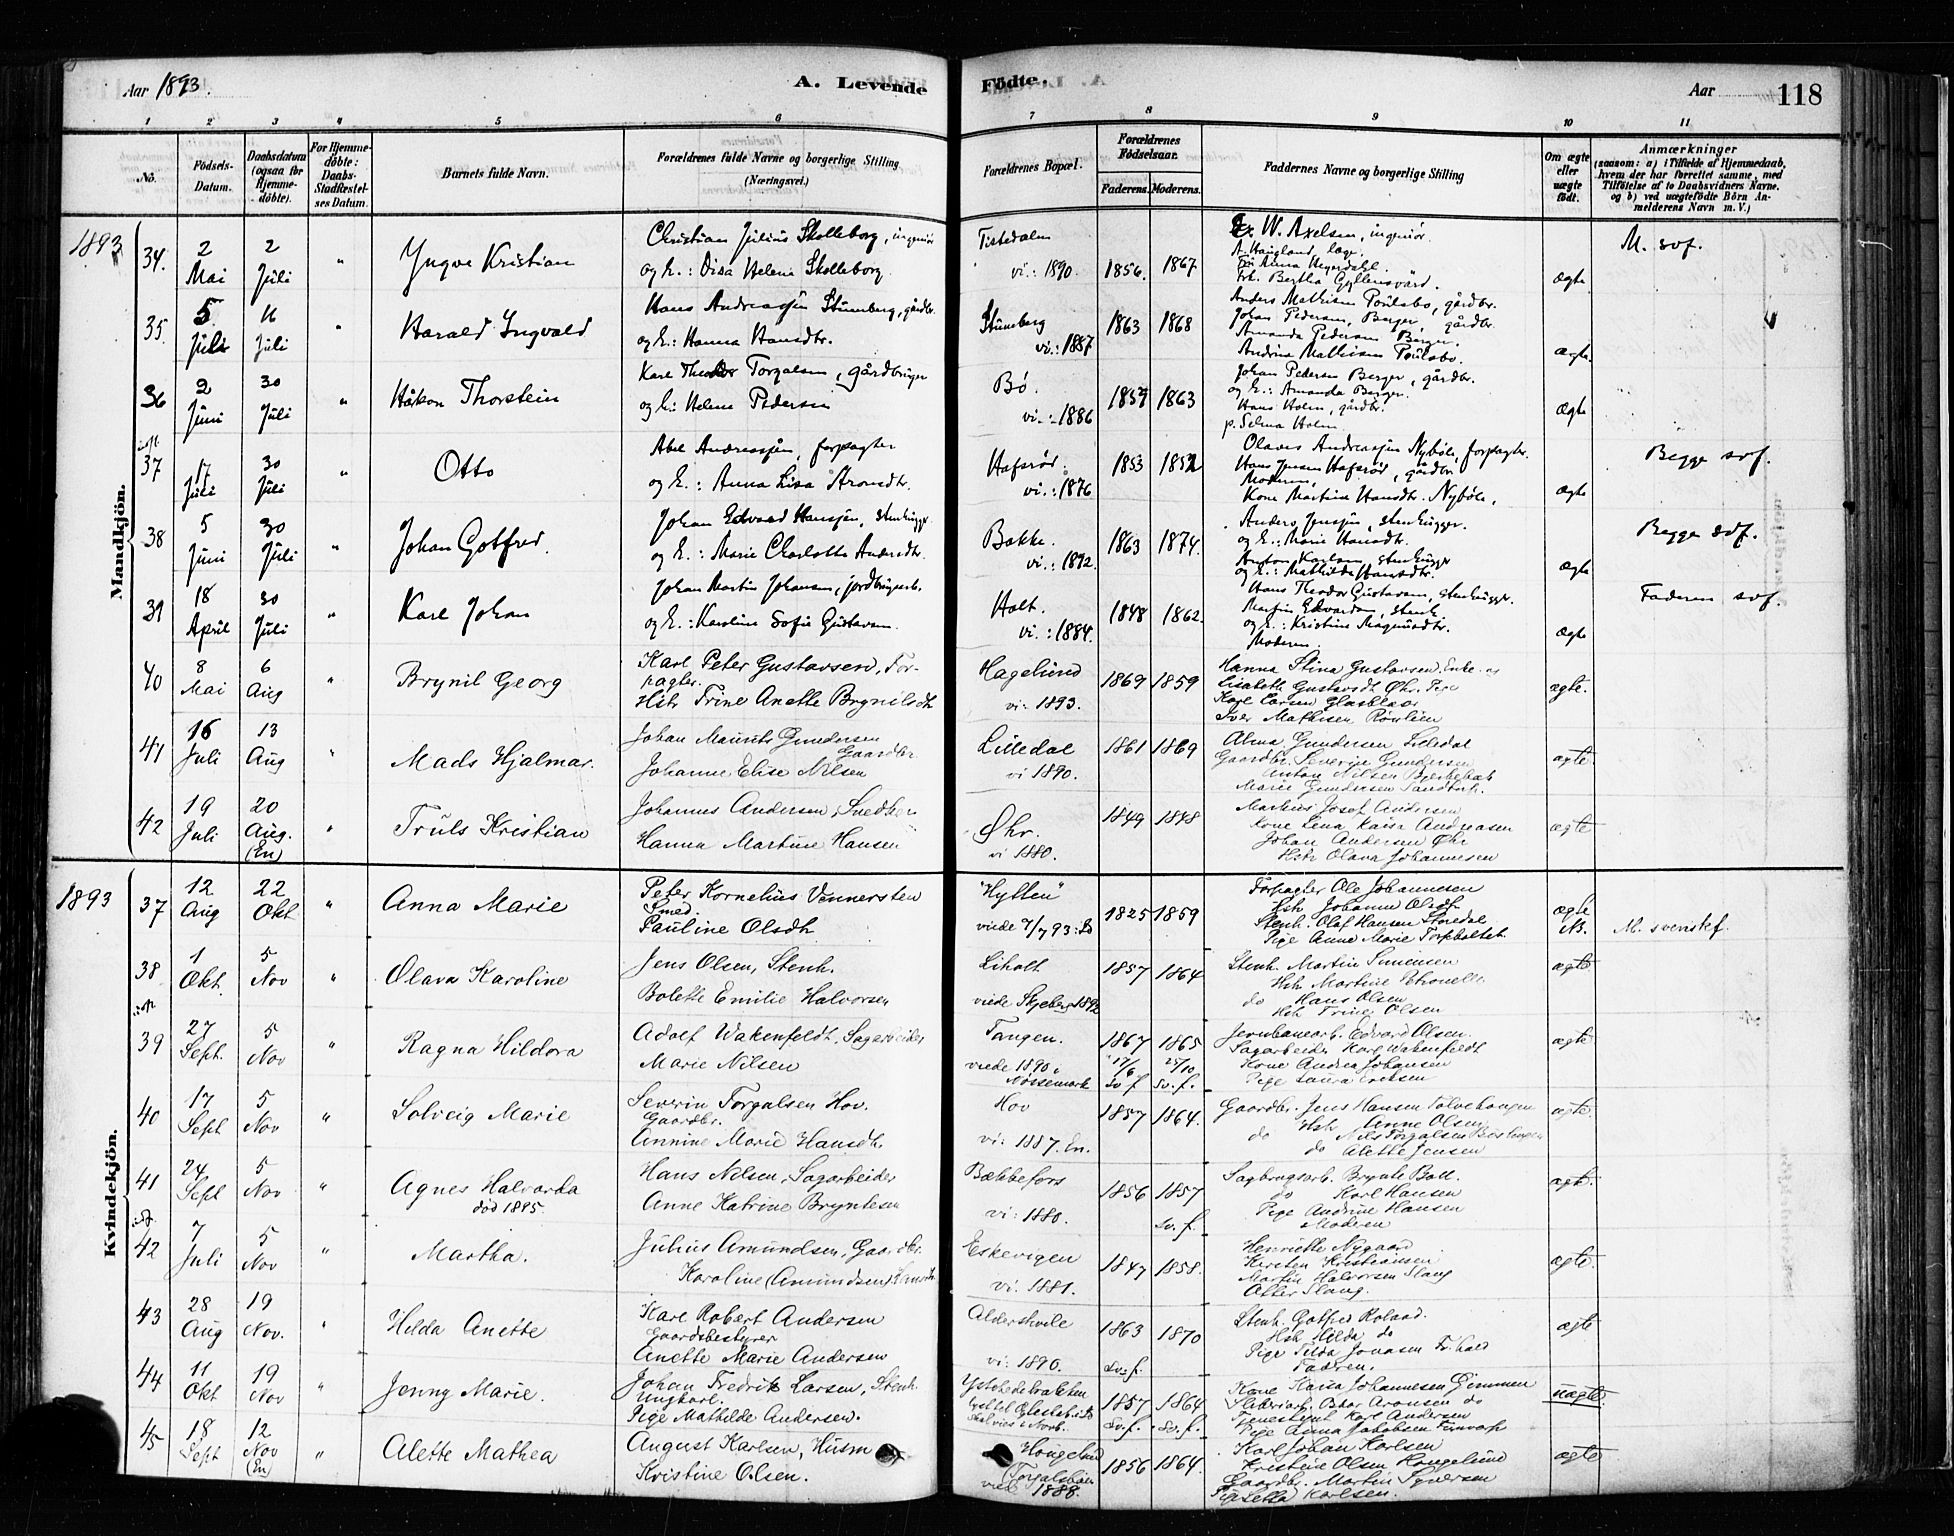 Aar 1893.
A. Levende
Födte.
Aar
118
1 2 3 4 5 6 7 8 9 10 11
No.
Födsels-Datum.
Daabsdatum (ogsaa for Hjemme-döbte).
For Hjemme-döbte: Daabs-Stadfæstel-ses Datum.
Barnets fulde Navn.
Forældrenes fulde Navne og borgerlige Stilling (Næringsvei.)
Forældrenes Bopæl.
Forældrenes Födselsaar.
Faderens. Moderens.
Faddernes Navne og borgerlige Stilling
Om ægte eller uægte födt.
Anmærkninger
(saasom: a) i Tilfælde af Hjemmedaab, hvem der har forrettet samme, med Tilföielse af to Daabsvidners Navne. og b) ved uægtefödte Börn An-melderens Navn m. V.)
Mandkjön.
1893
34. 2 Mai 2 Juli " Yngve Kristian
Christian Julius Skolleborg, ingeniør
og h.: Disa Helena Skolleborg.
Tistedalen vi.: 1890. 1856. 1867
W. Axelsen, ingeniør.
Frk. Bertha Gyllensvärd.
ægte M. svf.
35. 5 Juli 16 Juli " Harald Ingvald
Hans Andreassen Stumberg, gårdbr.
og h.: Hanna Hansdtr.
Stumberg vi.: 1887 1863 1868
Anders Mathisen Poulsbo, gårdbr.
Johan Pedersen, Berger, gårdbr.
Amanda Pedersen Berger.
Andrine Mathisen Poulsbo.
ægte
36 2 Juni 30 Juli " Håkon Thorstein
Karl Theodor Torgalsen, gårdbruger
og h: Helene Pedersen
Bø. vi.: 1886 1859 1863
Johan Pedersen Berger, gårdbr.
og h.: Amanda Berger.
Hans Holm, gårdbr.
p. Selma Holm.
ægte
37 17 Juli 30 Juli " Otto
Abel Andreassen, forpagter
og h.: Anna Lisa Aronsdtr.
Hafsrød. vi.: 1876 1853 1852
Olaves Andreassen Nybøle, forpagter.
Hans Jensen Hafsrød, gårdbr.
Moderen,
Kone Martine Hansdtr. Nybøle,
ægte Begge svf.
38 5 Juni 30 Juli " Johan Gotfred.
Johan Edvard Hanssen, stenhugger
og h.: Marie Charlotte Andersdtr.
Bakke. vi.: 1892. 1863 1874.
Anders Jenssen, stenhugger.
og h.: Marie Hansdtr.
Anton Karlsen, stenhugger
og h.: Mathilde Hansdtr.
ægte Begge svf.
39 18 April 30 Juli " Karl Johan
Johan Martin Johansen, jordbrugerarb.
og h.: Karoline Sofie Gustavsen.
Holt. vi.: 1884. 1848 1862.
Hans Theodor Gustavsen, stenhugger.
Martin Edvardsen, stenh
og h.: Kristine Magnusdtr.
Moderen.
ægte Faderen svf.
40 8 Mai 6 Aug " Brynil Georg
Karl Peter Gustavsen, For-
pagter.
Hstr Trine Anette Brynilsdtr
Hagelund vi: 1893. 1869 1859
Hanna Stina Gustavsen. Enke
Lisabeth Gustavsdt Øhr. Pige
Karl Larsen Glasblæser
Iver Mathisen Rørlien
ægte.
41 16 Juli 13 Aug " Mads Hjalmar.
Johan Maurits Gundersen
Gaardbr
Johanne Elise Nilsen
Lilledal vi 1890. 1861 1869
Alma Gundersen Lilledal
Gaardbr. Severin Gundersen
Anton Nilsen
Marie Gundersen
ægte
42 19 Juli 20 Aug. (En) " Truls Kristian
Johannes Andersen, Snedker
Hanna Martine Hansen
Øhr. vi 1880. 1849 1848
Markus Josef Andersen
Kone Lina Kaisa Andreasen
Johan Andersen Øhr
Hstr Olava Johannesen
ægte
Kvindekjön.
1893
37 12 Aug 22 Okt " Anna Marie
Peter Kornelius Vennersten
Smed.
Pauline Olsdtr
"Hytten" viede 7/7 93 1825 1859
Forpagter Ole Johannesen
Hstr Johanne Olsdtr
Stenh. Olaf Hansen Storedal
Pige Anne Marie Torpholtet
ægte N. M. svenskf.
38 1 Okt. 5 Nov " Olava Karoline
Jens Olsen, Stenh.
Bolette Emilie Halvorsen
Liholt viede Skjeberg 1892 1857 1864
Stenh. Martin Simensen
Hstr Martine Petronelle
do Hans Olsen
Hstr Trine Olsen
ægte
39 27 Sept. 5 Nov " Ragna Hildora
Adolf Wakenfeldt, Sagarbeider
Marie Nilsen
Tangen. viede 1890 i Nössemark 1867 17/6 Sv f 1865 25/10 Sv. f.
Jernbanearb. Edvard Olsen
Sagarbeider Karl Wakenfeldt
Kone Andrea Johansen
Pige Laura Eriksen
ægte
40 17 Sept 5 Nov " Solveig Marie
Severin Torgalsen Hov.
Gaardbr.
Annine Marie Hansdtr
Hov vi: 1887. En. 1857 1864.
Gaardbr. Jens Hansen
Hstr Anne Olsen
do Nils Torgalsen
do Alette Jensen
ægte
41 24 Sept 5 Nov " Agnes Halvarda
død 1895.
Hans Nilsen, Sagarbeider
Anne Katrine Bryntesen
Bækkefors vi: 1880. 1856 1857 Sv. f.
Sagbrugsarb. Brynte Boll.
do Karl Hansen
Pige Andrine Hansen
Modren
ægte.
42 7 Juli 5 Nov " Martha.
Julius Amundsen, Gaardbr.
Karoline (Amundsen) Hansdtr
Eskevigen vi. 1881. 1847 1858.
Henriette Nygaard
Kirsten Kristiansen
Martin Halvorsen Slang
Otter Slang.
ægte.
43 28 Aug 19 Nov. " Hilda Anette
Karl Robert Andersen
Gaardsbestyrer
Anette Marie Andersen
Aldershvile vi: 1890. 1863 Sv. f. 1870
Stenh. Gotfred Roland.
Hstr Hilda do
Pige Tilda Jonasen Fr.hald
Fadren.
ægte
44 11 Okt 19 Nov " Jenny Marie.
Johan Fredrik Larsen, Stenh.
Ungkarl.
Pige Mathilde Andersen.
1857 Sv. f. 1864 Sv. f.
Kone Kaisa Johannesen Gimmen
Oskar Aronsen do
Tjenestepige Karl Andersen
Pige Anna Jakobsen
uægte.
45 18 Sept 12 Nov (En) " Alette Mathea
August Karlsen, Husm
Kristine Olsen.
Hougelund (Torgalsbøen viet 1888. 1856 1864.
Karl Johan Karlsen
Kristine Olsen Hougelund
Gaardbr. Martin Syversen
Pige Setta Karlsen.
ægte